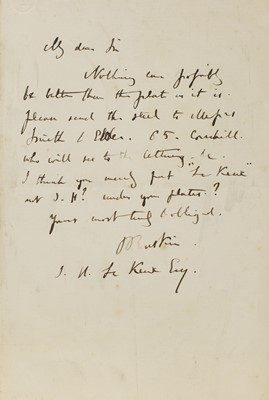 My dear Sir
Nothing can possibly
be better than the plate as it is.
please send the steel to Messrs
Smith & Elder. 65. Cornhill.
who will see to the lettering, &c.
I thank you merely put "Le Keux"
not J. H? under your plates?
Yours most truly & obliged.
J Ruskin
J. H. Le Keux Esq.